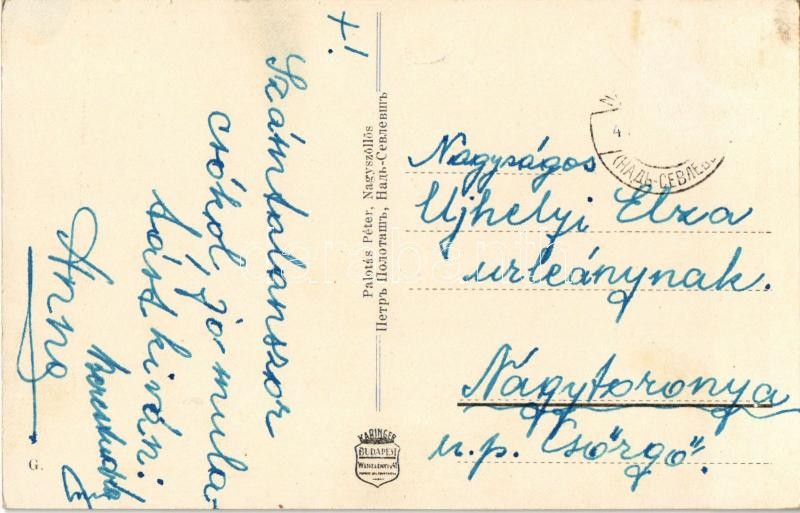 +!
Számtalanszor
csókol, jó mula-
tást kiván:
Anna
Palotás Péter, Nagyszöllős
Петръ Полоташъ, Надь-Севлевшъ
KARINGER
BUDAPEST
G.
4
(НАДЬ-СЕВЛЕВ
Nagyságos
Ujhelyi Elza
urleánynak.
Nagytoronya
u.p. "Csörgő".